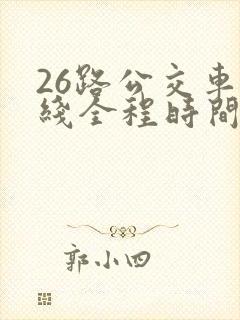 26路公交车
綫全程时間
郭小四